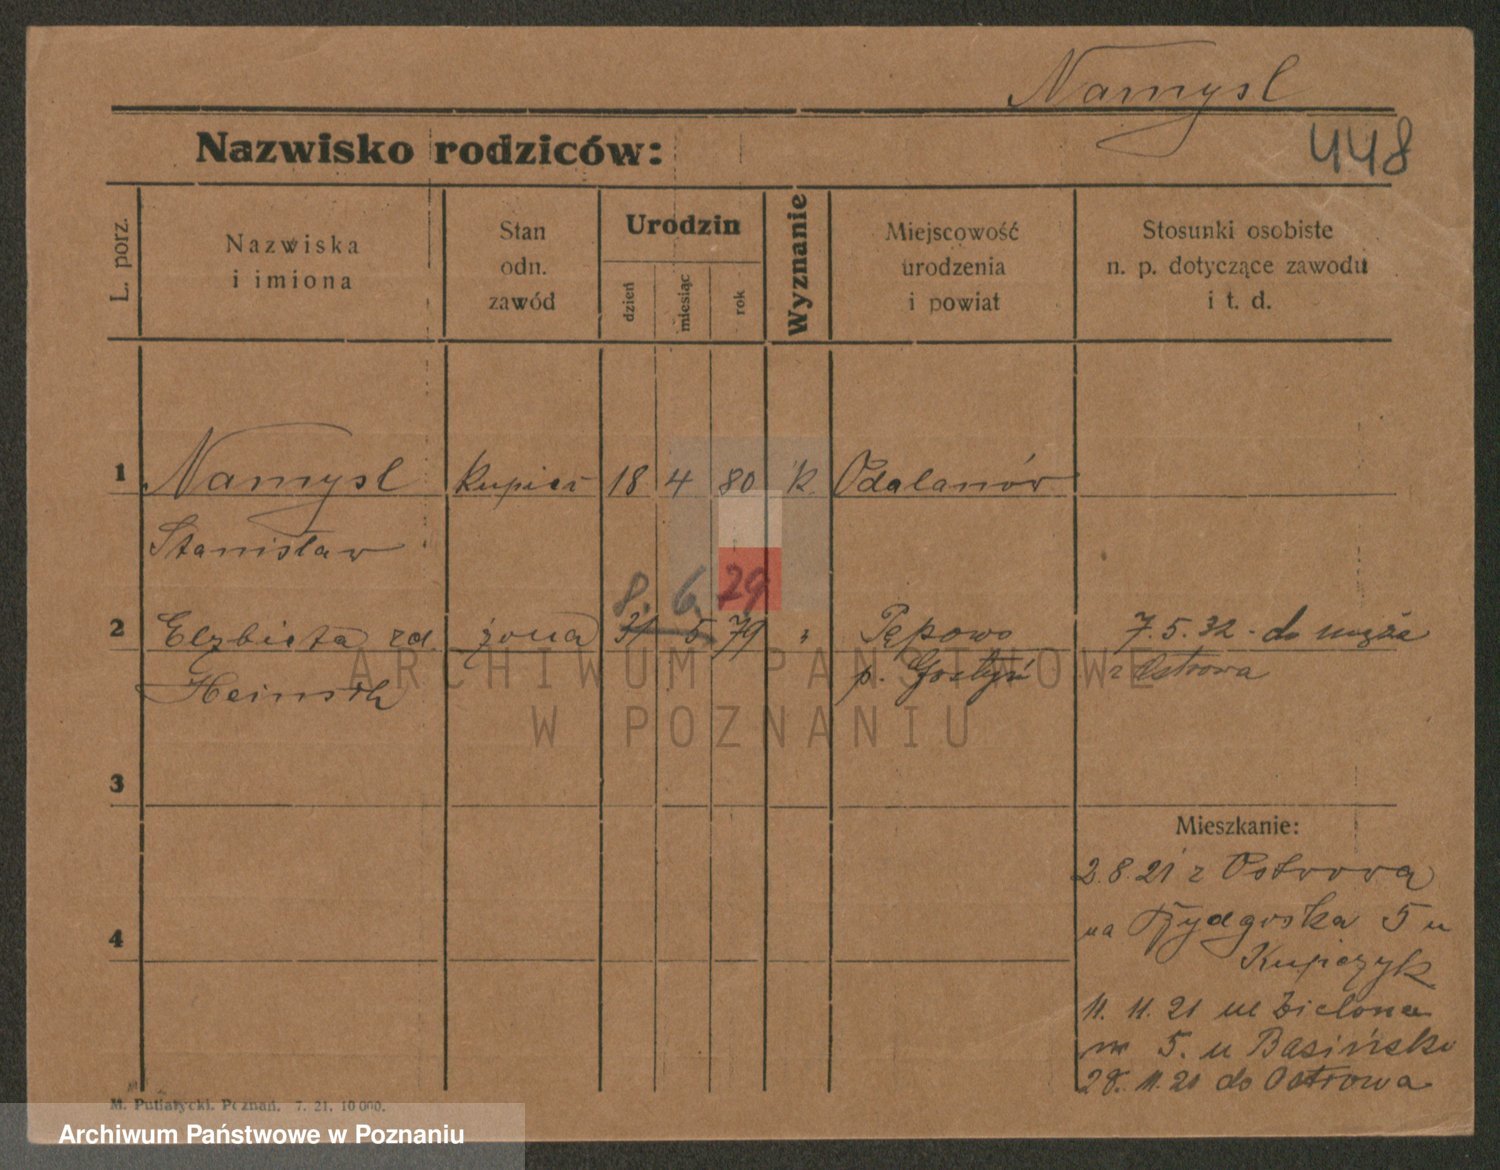 Namysl
Nazwisko rodziców:
448
L. porz.
Nazwiska
i imiona
Stan
odn.
zawód
Urodzin
dzień
miesiąc
rok
Wyznanie
Miejscowość
urodzenia
i powiat
Stosunki osobiste
n. p. dotyczące zawodu
i t. d.
1 Namysl kupiec 18 4 80 k Odalanów
Stanisław
8. 6. 29
2 Elzbieta rd. żona 31 5 79 " Pępowo 7.5.32 - do męża
Heinsch p. Gostyń z Ostrowa
ARCHIWUM PAŃSTWOWE
W POZNANIU
3
Mieszkanie:
2.8.21 z Ostrowa
na Bydgoska 5 u
4
Kupczyk
11. 11. 21 ul Zielona
nr 5. u Basińsko
28. 11. 21 do Ostrowa
M. Putiatycki. Poznań. 7. 21. 10 000.
Archiwum Państwowe w Poznaniu